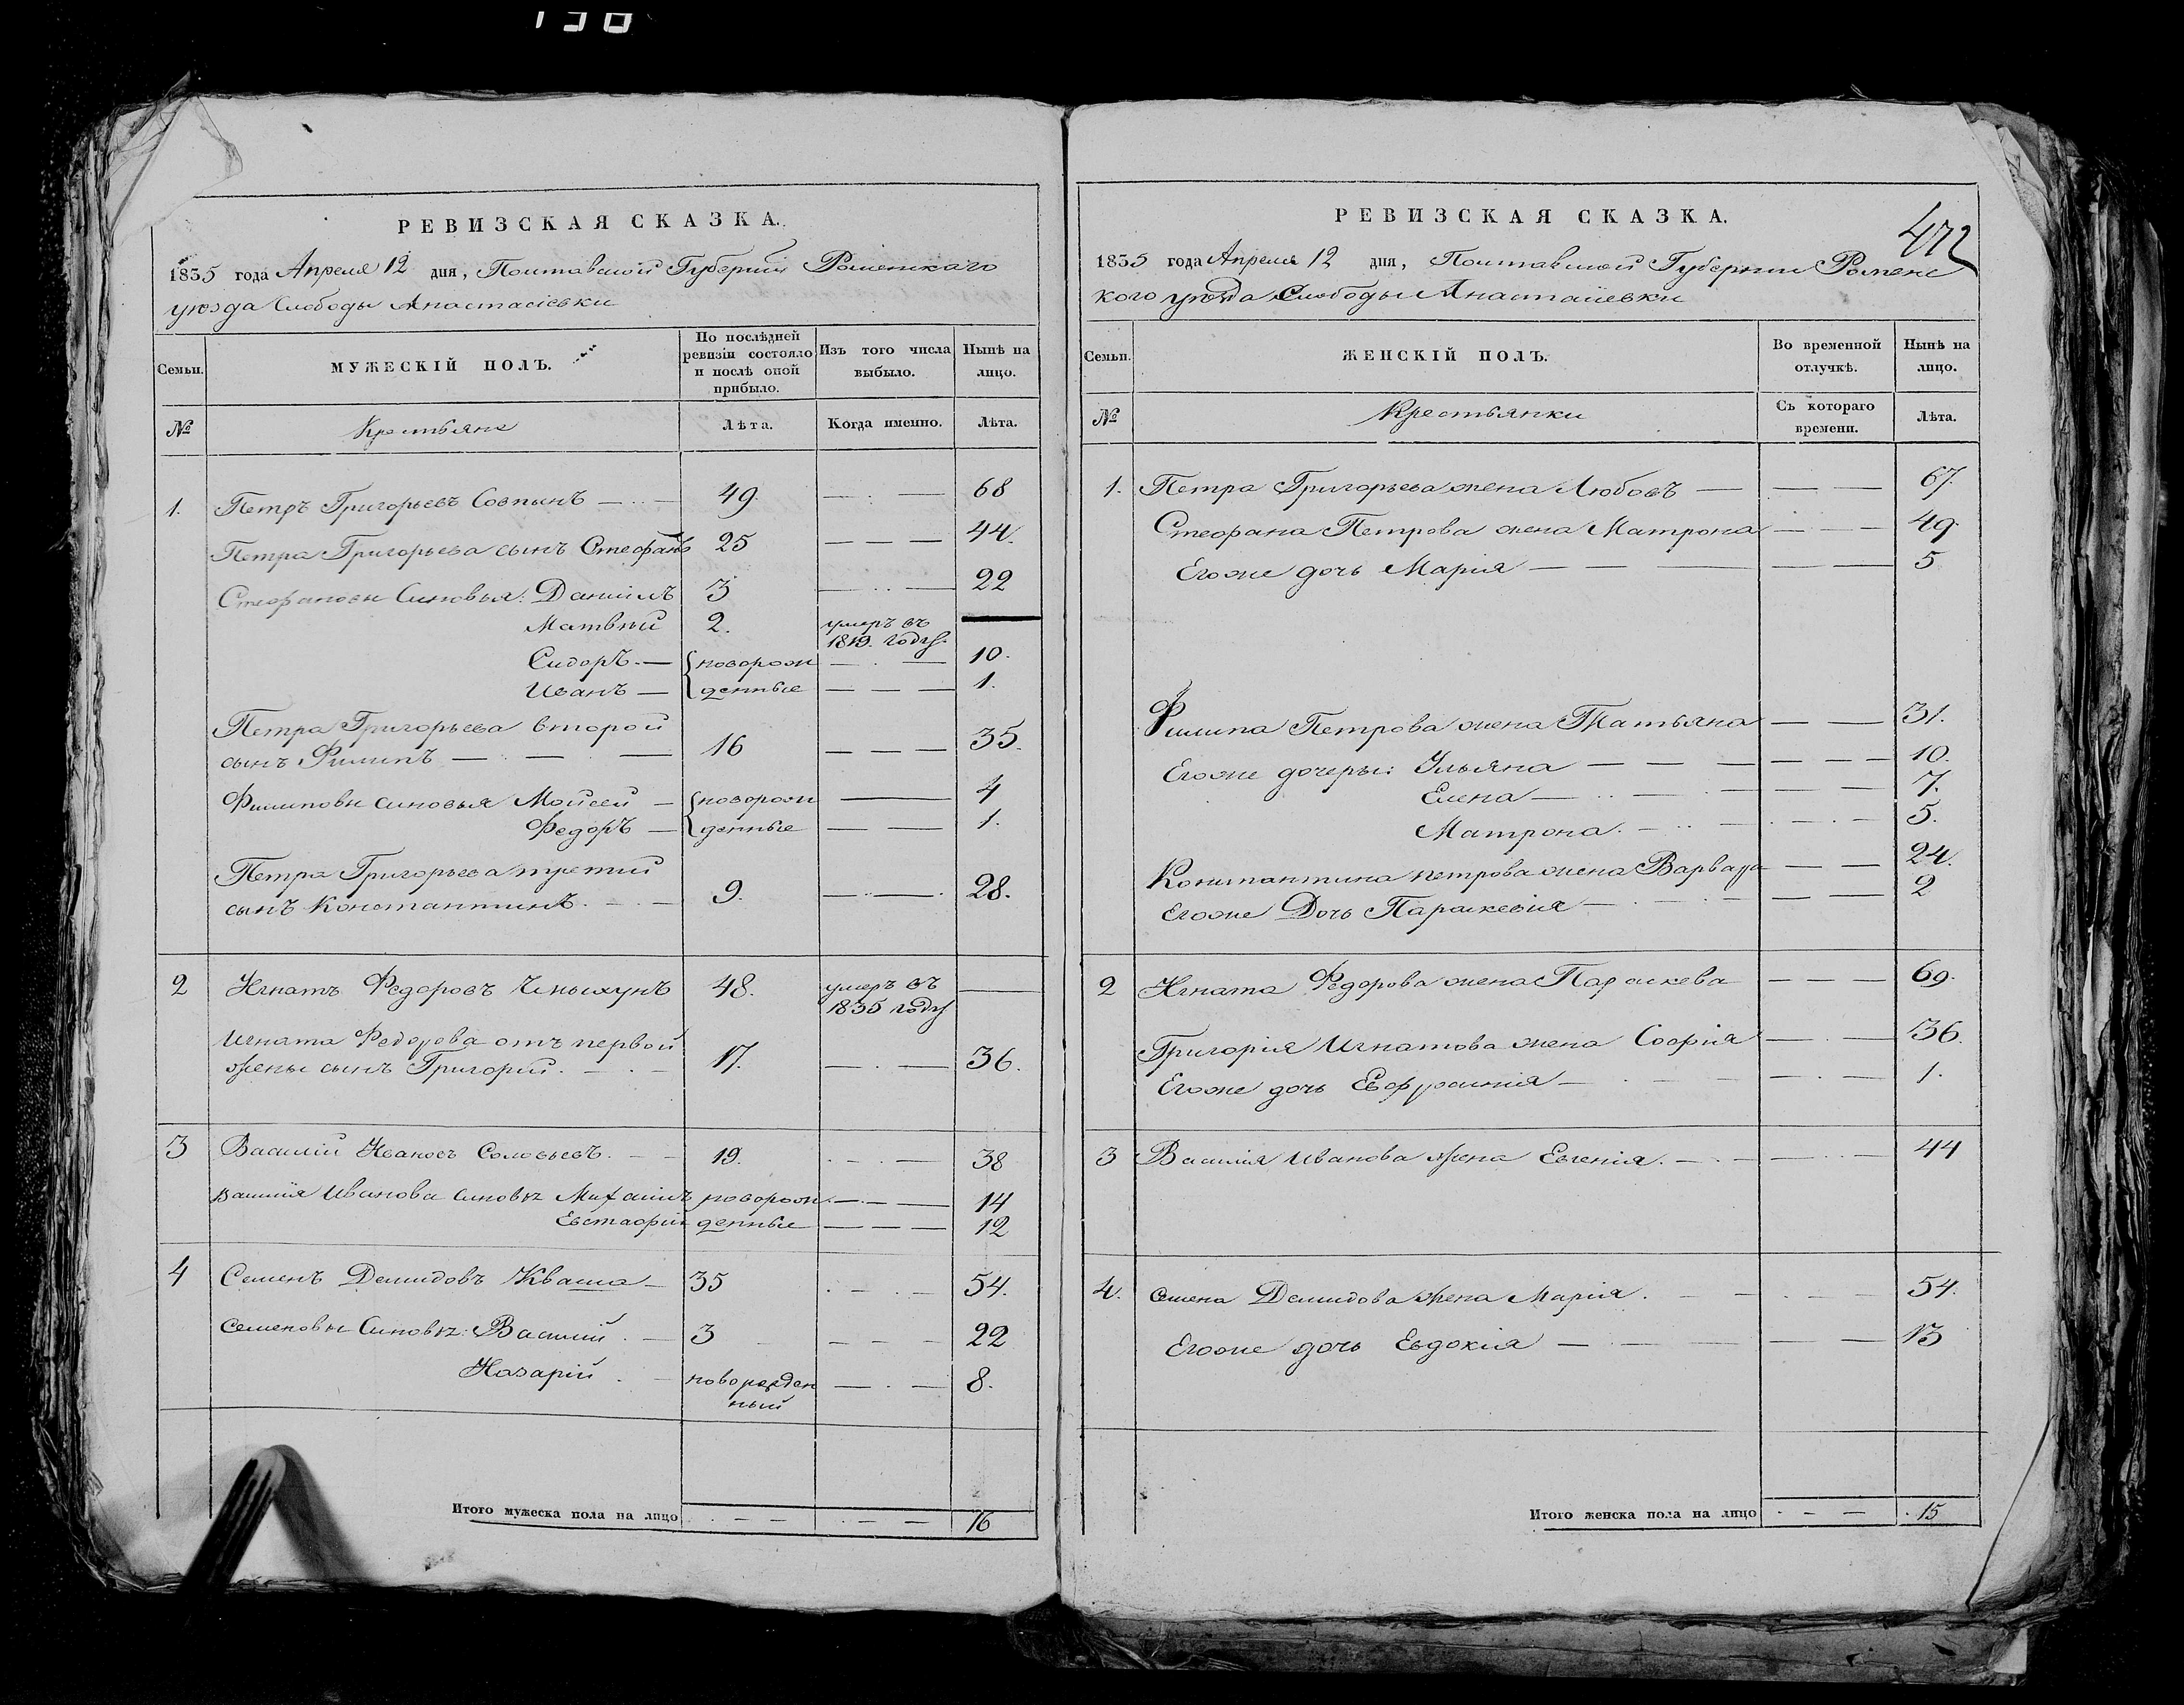 РЕВИЗСКАЯ СКАЗКА.
1835 года Апреля 12 дня, Полтавской Губернии Роменскаго
уѣзда Слободы Анастасіевки
Семьи.
МУЖЕСКІЙ ПОЛЪ.
По послѣдней ревизіи состояло и послѣ оной прибыло.
Изъ того числа выбыло.
Нынѣ на лицо.
№
Крестьяне
Лѣта.
Когда именно.
Лѣта.
1. Петръ Григорьевъ 49. — — 68
Петра Григорьева сынъ Стефанъ 25 — — — 44.
Стефановы Синовья: Даніилъ 3 — — 22
Матвѣй 2. умеръ въ 1819. году. —
Сидоръ. — новорож — — 10.
Иванъ — денные — — — 1.
Петра Григорьева второй
сынъ Филипъ — — — 16 — — — 35.
Филиповы синовья Мойсей — новорож — 4
Федоръ — денные — — 1.
Петра Григорьева третий
сынъ Константинъ. — — 9. — — 28.
2 Игнатъ Федоровъ 48. умеръ въ 1835 году —
Игната Федорова отъ первой
жены сынъ Григорій. — — 17. — — 36.
3 Василій Ивановъ Соловьевъ. — — 19. — — 38
Василія Иванова синовья Михаилъ новорож — — 14
Евстафій денные — — — 12
4 Семенъ Демидовъ Кваша — 35 — — 54.
Семеновы Синовья: Василій. — 3 — — — 22
Назарій. — новорожден — — 8.
ный
Итого мужеска пола на лицо — — — — 16
472
РЕВИЗСКАЯ СКАЗКА.
1835 года Апреля 12 дня, Полтавской Губернии Роменс
кого уѣзда Слободы Анастасіевки
Семьи.
ЖЕНСКІЙ ПОЛЪ.
Во временной отлучкѣ.
Нынѣ на лицо.
№
Крестьянки
Съ котораго времени.
Лѣта.
1. Петра Григорьева жена Любовъ — — — 67.
Стефана Петрова жена Матрона — — — 49.
Егоже дочь Марія — — — — 5
Филипа Петрова жена Татьяна — — 31.
Егоже дочеры: Ульяна — — — — — — 10.
Елена — — — — — 7.
Матрона. — — — — 5.
Константина петрова жена Варвара — — 24.
Егоже Дочь Параскевия — — — — 2
2 Игната Федорова жена Параскева — — — 69.
Григорія Игнатова жена Софія — — 36.
Егоже дочь Ефросинія — — — 1.
3 Василія Иванова жена Евгенія. — — — — 44
4. Семена Демидова жена Марія. — — — — 54.
Егоже дочь Евдокія — — — — 13
Итого женска пола на лицо — — 15